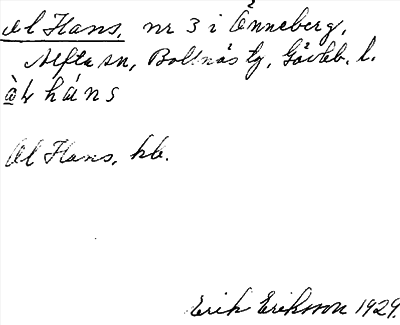 Ol Hans, nr 3 i Änneberg,
Alfta sn, Bollnäs tg, Gävleb. l.
háns
Ol Hans, hb.
Erik Eriksson 1929.